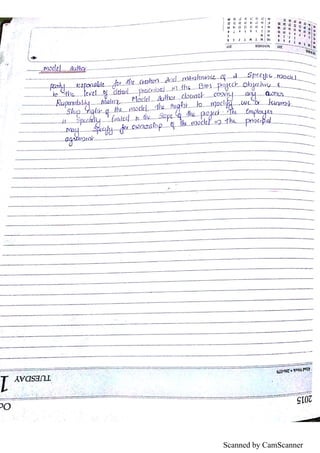 model Author
party responsible for the creation and maintenance of a Specific model
to the level of detail prescribed in the BIM project Objective &
Responsibility Matrix. Model Author doesnot convey any owner
Ship right of the model. the right to modify use or transmit
is Specifically limited to the Scope of the project The Employer
may Specify for ownership of the model in the principal
agreement.
TUESDAY 1
2015
Scanned by CamScanner